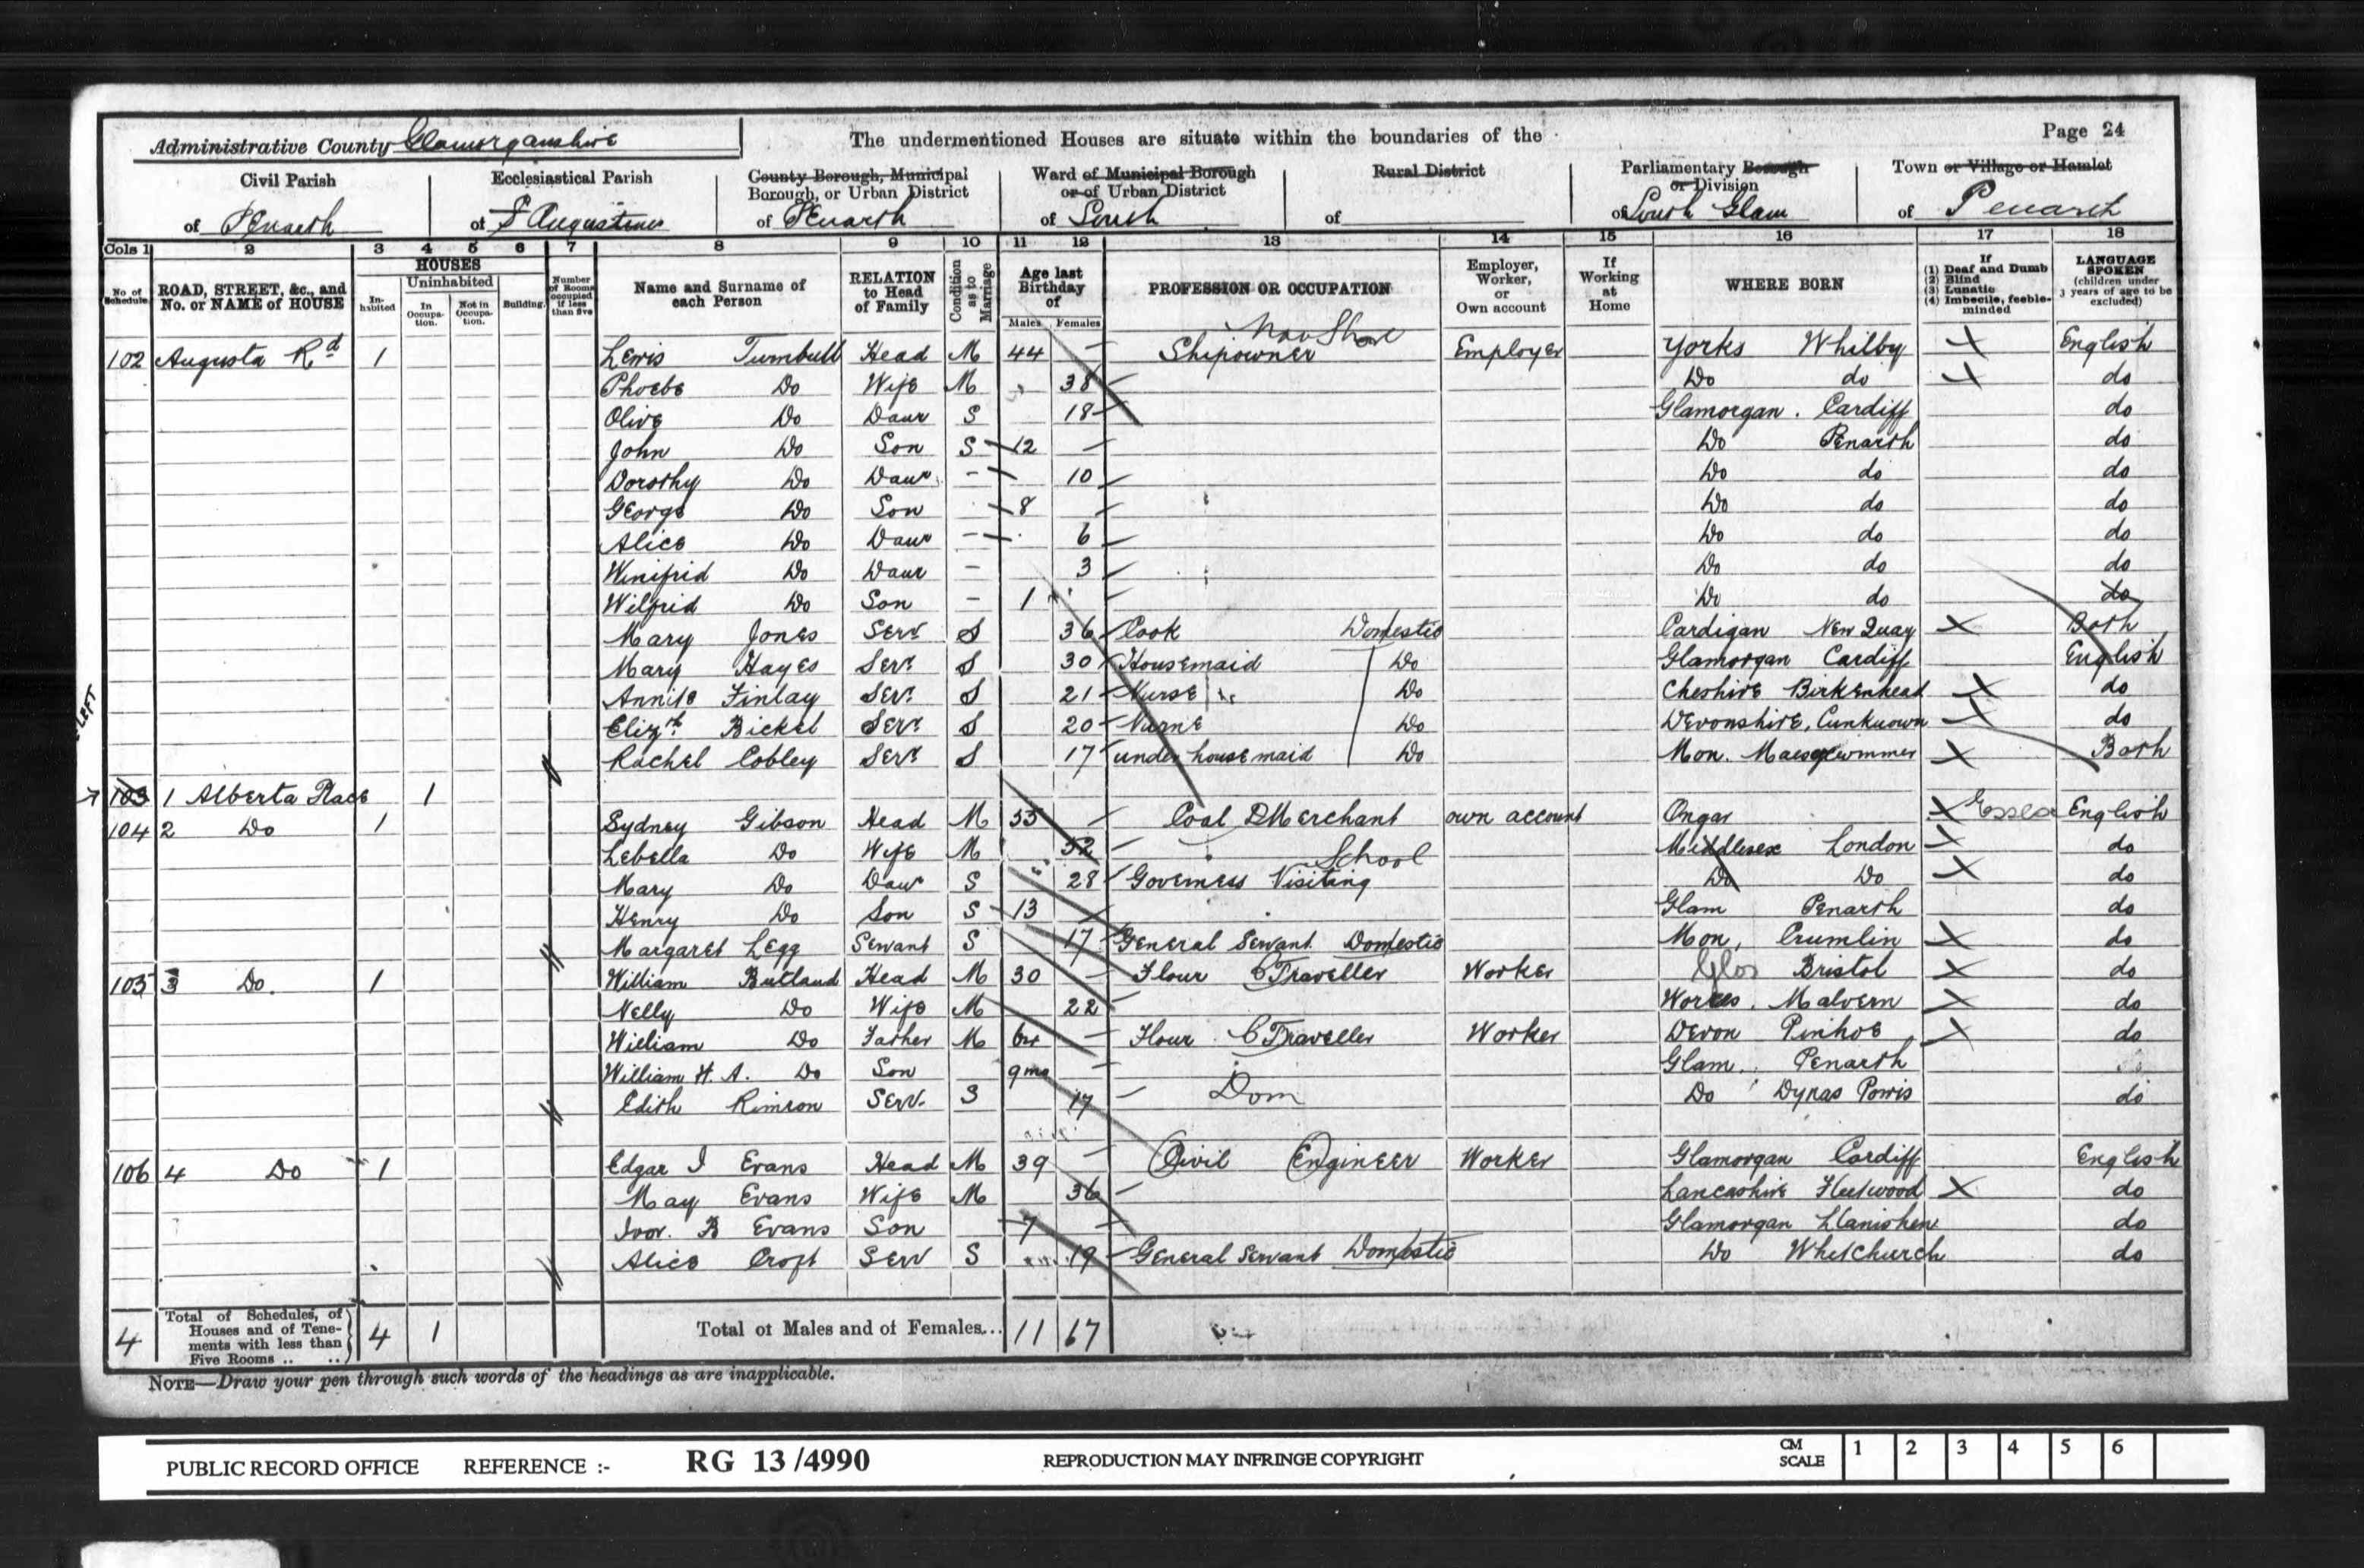 Page 24
Administrative County Glamorganshire The undermentioned Houses are situate within the boundaries of the
Civil Parish of Penarth
Ecclesiastical Parish of St Augustines
County Borough, Municipal Borough, or Urban District of Penarth
Ward of Municipal Borough or of Urban District of South
Rural District of
Parliamentary Borough or Division of South Glam
Town or Village or Hamlet of Penarth
Cols 1 2 3 4 5 6 7 8 9 10 11 12 13 14 15 16 17 18
No of Schedule
ROAD, STREET, &c., and No. or NAME of HOUSE
HOUSES
Inhabited
Uninhabited
In Occupation.
Not in Occupation.
Building.
Number of Rooms occupied if less than five
Name and Surname of each Person
RELATION to Head of Family
Condition as to Marriage
Age last Birthday of
Males Females
PROFESSION OR OCCUPATION
Employer, Worker, or Own account
If Working at Home
WHERE BORN
If (1) Deaf and Dumb (2) Blind (3) Lunatic (4) Imbecile, feeble-minded
LANGUAGE SPOKEN (children under 3 years of age to be excluded)
102 Augusta Rd 1 Lewis Turnbull Head M 44 – Shipowner Employer Yorks Whitby X English
Phoebe Do Wife M 38 Do do X do
Olive Do Daur S 18 Glamorgan. Cardiff do
John Do Son S 12 – Do Penarth do
Dorothy Do Daur. – 10 Do do do
George Do Son 8 Do do do
Alice Do Daur – 6 Do do do
Winifrid Do Daur – 3 Do do do
Wilfrid Do Son – 1 Do do do
Mary Jones Servt S 36 Cook Domestic Cardigan New Quay X Both
Mary Hayes Servt S 30 Housemaid Do Glamorgan Cardiff English
Annie Finlay Servt S 21 Nurse Do Cheshire Birkenhead X do
Elizth Bickel Servt S 20 Nurse Do Devonshire, Cunknown X do
Rachel Cobley Servt S 17 under housemaid Do Mon. X Both
LEFT
103 1 Alberta Place 1
104 2 Do 1 Sydney Gibson Head M 55 – Coal Merchant own account Ongar X Essex English
Lebella Do Wife M 52 Middlesex London X do
School
Mary Do Daur S 28 Governess Visiting Do Do X do
Henry Do Son S 13 Glam Penarth do
Margaret Legg Servant S 17 General Servant Domestic Mon, Crumlin X do
105 3 Do. 1 William Butland Head M 30 – Flour C Traveller Worker Glos Bristol X do
Nelly Do Wife M 22 Worces. Malvern X do
William Do Father M 64 – Flour C Traveller Worker Devon Pinhoe X do
William H. A. Do Son 9mo – Glam. Penarth
Edith Rimron Serv. S 17 – Dom Do Dynas Powis do
106 4 Do 1 Edgar I Evans Head M 39 – Civil Engineer Worker Glamorgan Cardiff English
May Evans Wife M 36 Lancashire Fleetwood X do
Ivor. B Evans Son 7 Glamorgan Llanishen do
Alice Croft Serv S 19 General Servant Domestic Do Whitchurch do
4 Total of Schedules, of Houses and of Tenements with less than Five Rooms .. .. 4 1 Total of Males and of Females... 11 17
NOTE—Draw your pen through such words of the headings as are inapplicable.
PUBLIC RECORD OFFICE REFERENCE :- RG 13/4990 REPRODUCTION MAY INFRINGE COPYRIGHT CM SCALE 1 2 3 4 5 6